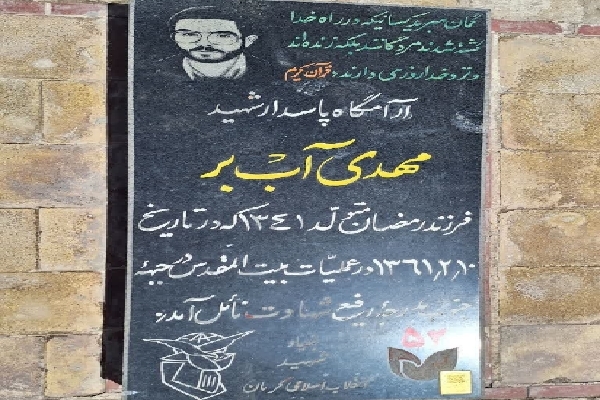 گمان مبرید کسانیکه در راه خدا
کشته شدند مردگانند بلکه زنده‌اند
و نزد خدا روزی دارند. قرآن کریم
آرامگاه پاسدار شهید
مهدی آب بر
فرزند رمضان متولد ۱۳۴۱ که در تاریخ
۱۳۶۱٫۲٫۱۰ در عملیات بیت المقدس در جبهه
بدرجه رفیع شهادت نائل آمد
۵۲
بنیاد
شهید
انقلاب اسلامی